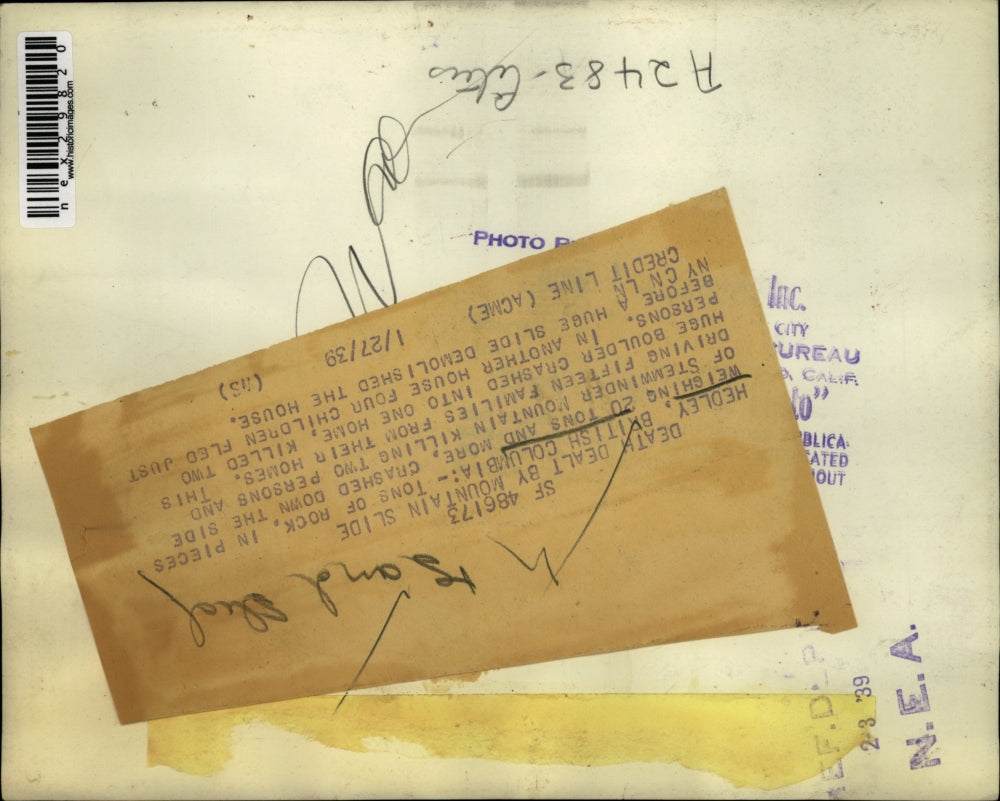 n e x 2 9 8 2 0
www.historicimages.com
A2483-
PHOTO
SF 486173
DEATH DEALT BY MOUNTAIN SLIDE
HEDLEY, BRITISH COLUMBIA:- TONS OF ROCK, IN PIECES
WEIGHING 20 TONS AND MORE, CRASHED DOWN THE SIDE
OF STEMWINDER MOUNTAIN KILLING TWO PERSONS AND
DRIVING FIFTEEN FAMILIES FROM THEIR HOMES. THIS
HUGE BOULDER CRASHED INTO ONE HOME, KILLED TWO
PERSONS. IN ANOTHER HOUSE FOUR CHILDREN FLED JUST
BEFORE A HUGE SLIDE DEMOLISHED THE HOUSE.
NY CN LN
CREDIT LINE (ACME) 1/27/39
INC.
CITY
UREAU
CALIF.
BLICA-
ATED
OUT
'39
N. E. A.